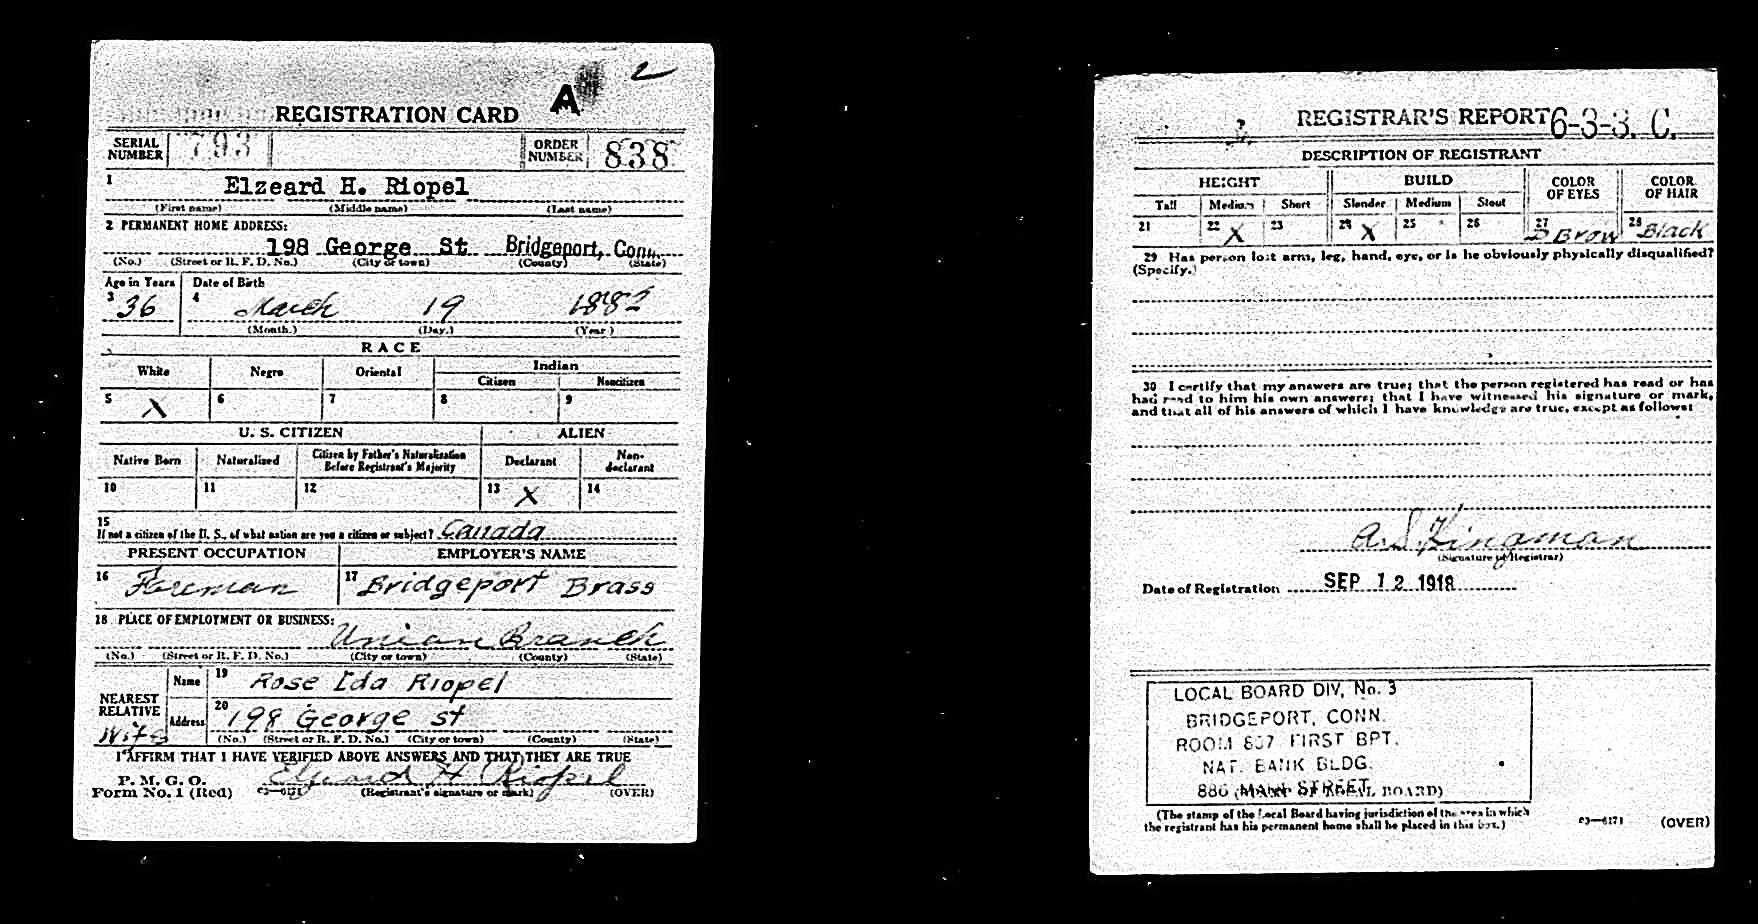 2
A
REGISTRATION CARD
SERIAL NUMBER 793 ORDER NUMBER 838
1 Elzeard H. Riopel
(First name) (Middle name) (Last name)
2 PERMANENT HOME ADDRESS:
198 George St Bridgeport, Conn.
(No.) (Street or R. F. D. No.) (City or town) (County) (State)
Age in Years Date of Birth
3 36 4 March 19 1882
(Month.) (Day.) (Year)
RACE
White Negro Oriental Indian
Citizen Noncitizen
5 X 6 7 8 9
U. S. CITIZEN ALIEN
Native Born Naturalized Citizen by Father's Naturalization Before Registrant's Majority Declarant Non-declarant
10 11 12 13 X 14
15
If not a citizen of the U. S., of what nation are you a citizen or subject? Canada
PRESENT OCCUPATION EMPLOYER'S NAME
16 Foreman 17 Bridgeport Brass
18 PLACE OF EMPLOYMENT OR BUSINESS:
Union Branch
(No.) (Street or R. F. D. No.) (City or town) (County) (State)
NEAREST RELATIVE Name 19 Rose Ida Riopel
Wife Address 20 198 George st
(No.) (Street or R. F. D. No.) (City or town) (County) (State)
I AFFIRM THAT I HAVE VERIFIED ABOVE ANSWERS AND THAT THEY ARE TRUE
P. M. G. O.
Form No. 1 (Red) 03—6171 Elzeard H Riopel
(Registrant's signature or mark) (OVER)
REGISTRAR'S REPORT 6-3-3. C.
DESCRIPTION OF REGISTRANT
HEIGHT BUILD COLOR OF EYES COLOR OF HAIR
Tall Medium Short Slender Medium Stout
21 22 X 23 24 X 25 26 27 Brow 28 Black
29 Has person lost arm, leg, hand, eye, or is he obviously physically disqualified?
(Specify.)
30 I certify that my answers are true; that the person registered has read or has
had read to him his own answers; that I have witnessed his signature or mark,
and that all of his answers of which I have knowledge are true, except as follows:
A. S. Kingman
(Signature of Registrar)
Date of Registration SEP 12 1918
LOCAL BOARD DIV, No. 3
BRIDGEPORT, CONN.
ROOM 837 FIRST BPT.
NAT. BANK BLDG.
886 MAIN STREET
(STAMP OF LOCAL BOARD)
(The stamp of the Local Board having jurisdiction of the area in which
the registrant has his permanent home shall be placed in this box.)
03—6171 (OVER)